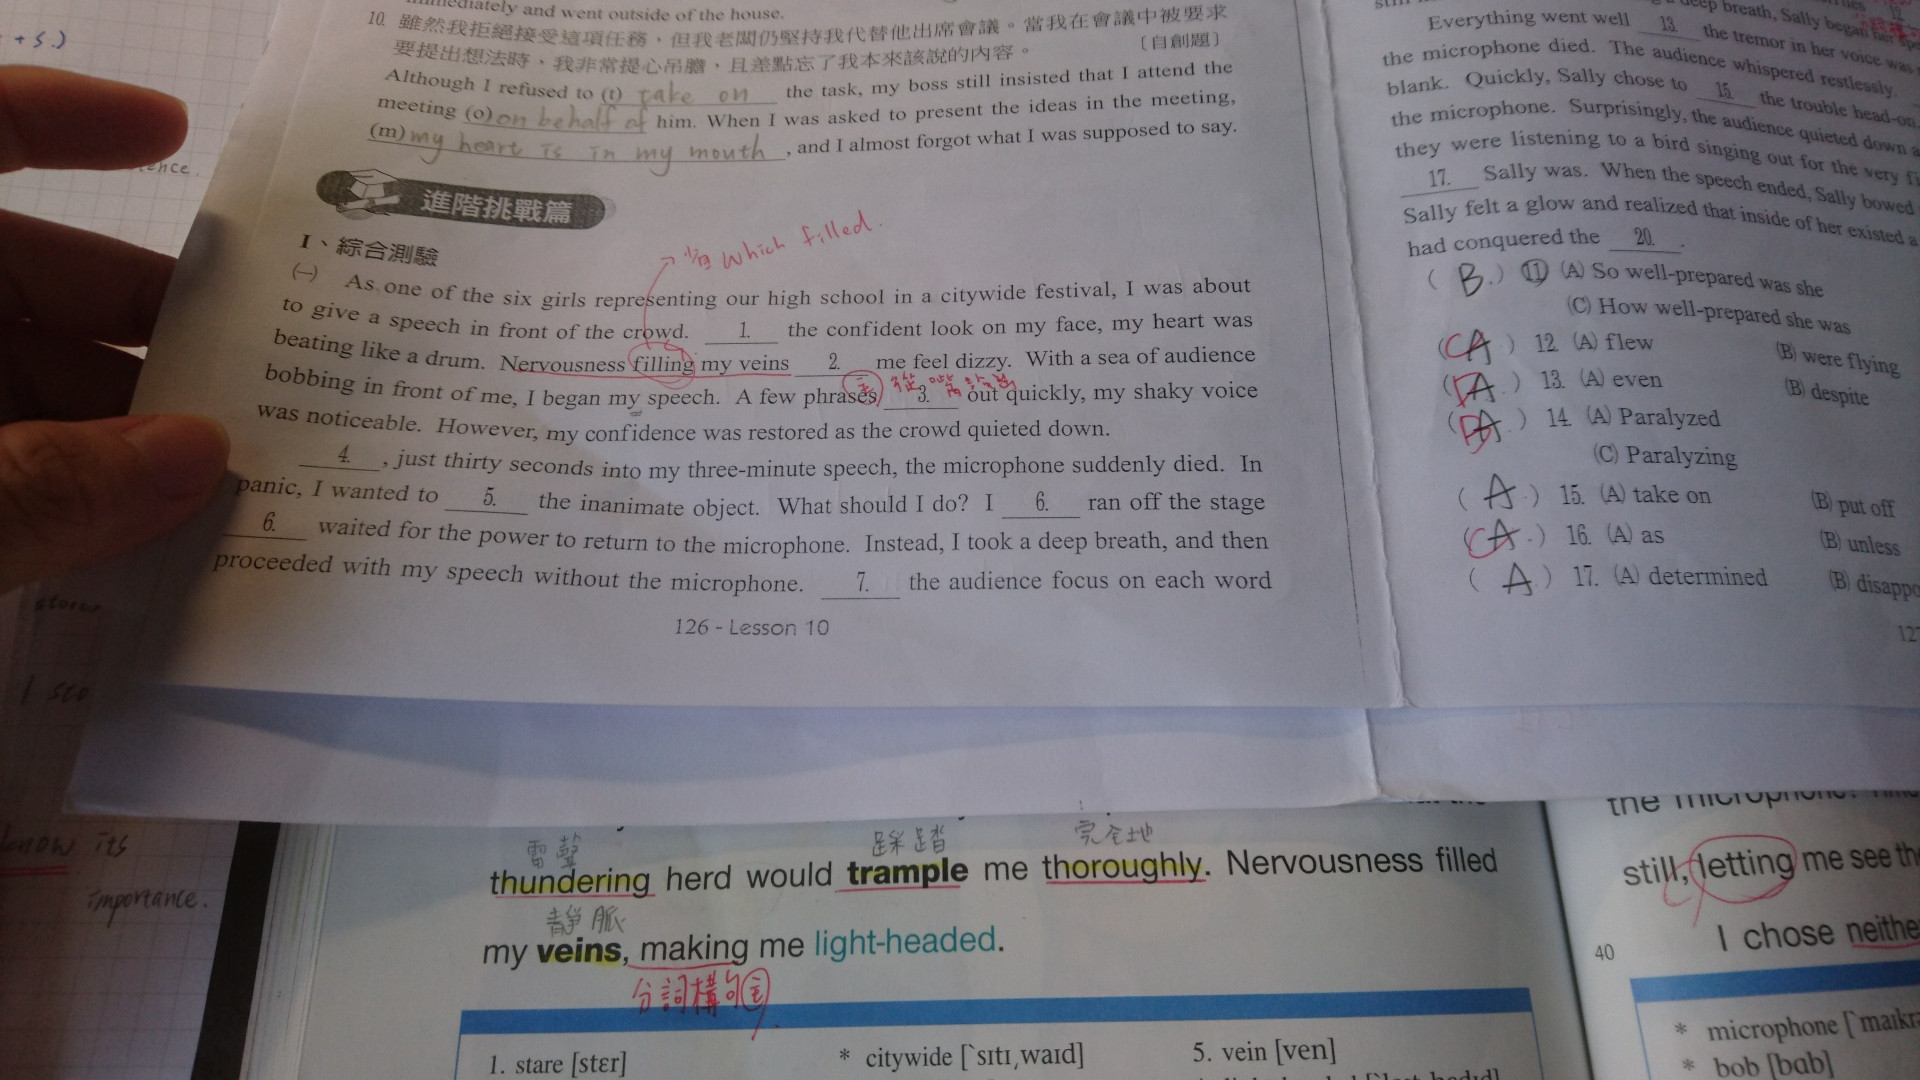 immediately and went outside of the house.
10. 雖然我拒絕接受這項任務，但我老闆仍堅持我代替他出席會議。當我在會議中被要求
要提出想法時，我非常提心吊膽，且差點忘了我本來該說的內容。〔自創題〕
Although I refused to (t) take on the task, my boss still insisted that I attend the
meeting (o) on behalf of him. When I was asked to present the ideas in the meeting,
(m) my heart is in my mouth, and I almost forgot what I was supposed to say.
進階挑戰篇
which filled.
I、綜合測驗
(一) As one of the six girls representing our high school in a citywide festival, I was about
to give a speech in front of the crowd. 1. the confident look on my face, my heart was
beating like a drum. Nervousness filling my veins 2. me feel dizzy. With a sea of audience
bobbing in front of me, I began my speech. A few phrases 3. out quickly, my shaky voice
was noticeable. However, my confidence was restored as the crowd quieted down.
4. , just thirty seconds into my three-minute speech, the microphone suddenly died. In
panic, I wanted to 5. the inanimate object. What should I do? I 6. ran off the stage
6. waited for the power to return to the microphone. Instead, I took a deep breath, and then
proceeded with my speech without the microphone. 7. the audience focus on each word
126 - Lesson 10
deep breath, Sally began her
Everything went well 13. the tremor in her voice was
the microphone died. The audience whispered restlessly.
blank. Quickly, Sally chose to 15. the trouble head-on.
the microphone. Surprisingly, the audience quieted down
they were listening to a bird singing out for the very
17. Sally was. When the speech ended, Sally bowed
Sally felt a glow and realized that inside of her existed a
had conquered the 20. .
( B. ) 11 (A) So well-prepared was she
(C) How well-prepared she was
( A ) 12. (A) flew (B) were flying
( A. ) 13. (A) even (B) despite
( A. ) 14. (A) Paralyzed
(C) Paralyzing
( A. ) 15. (A) take on (B) put off
( A. ) 16. (A) as (B) unless
( A. ) 17. (A) determined (B)
+ s.)
know its
importance.
雷聲 踩踏 完全地
thundering herd would trample me thoroughly. Nervousness filled
靜脈
my veins, making me light-headed.
分詞構句
1. stare [stɛr]
* citywide [ˋsɪtɪˌwaɪd]
5. vein [ven]
the microphone?
still, letting me see
40
I chose
* microphone
* bob [bɑb]